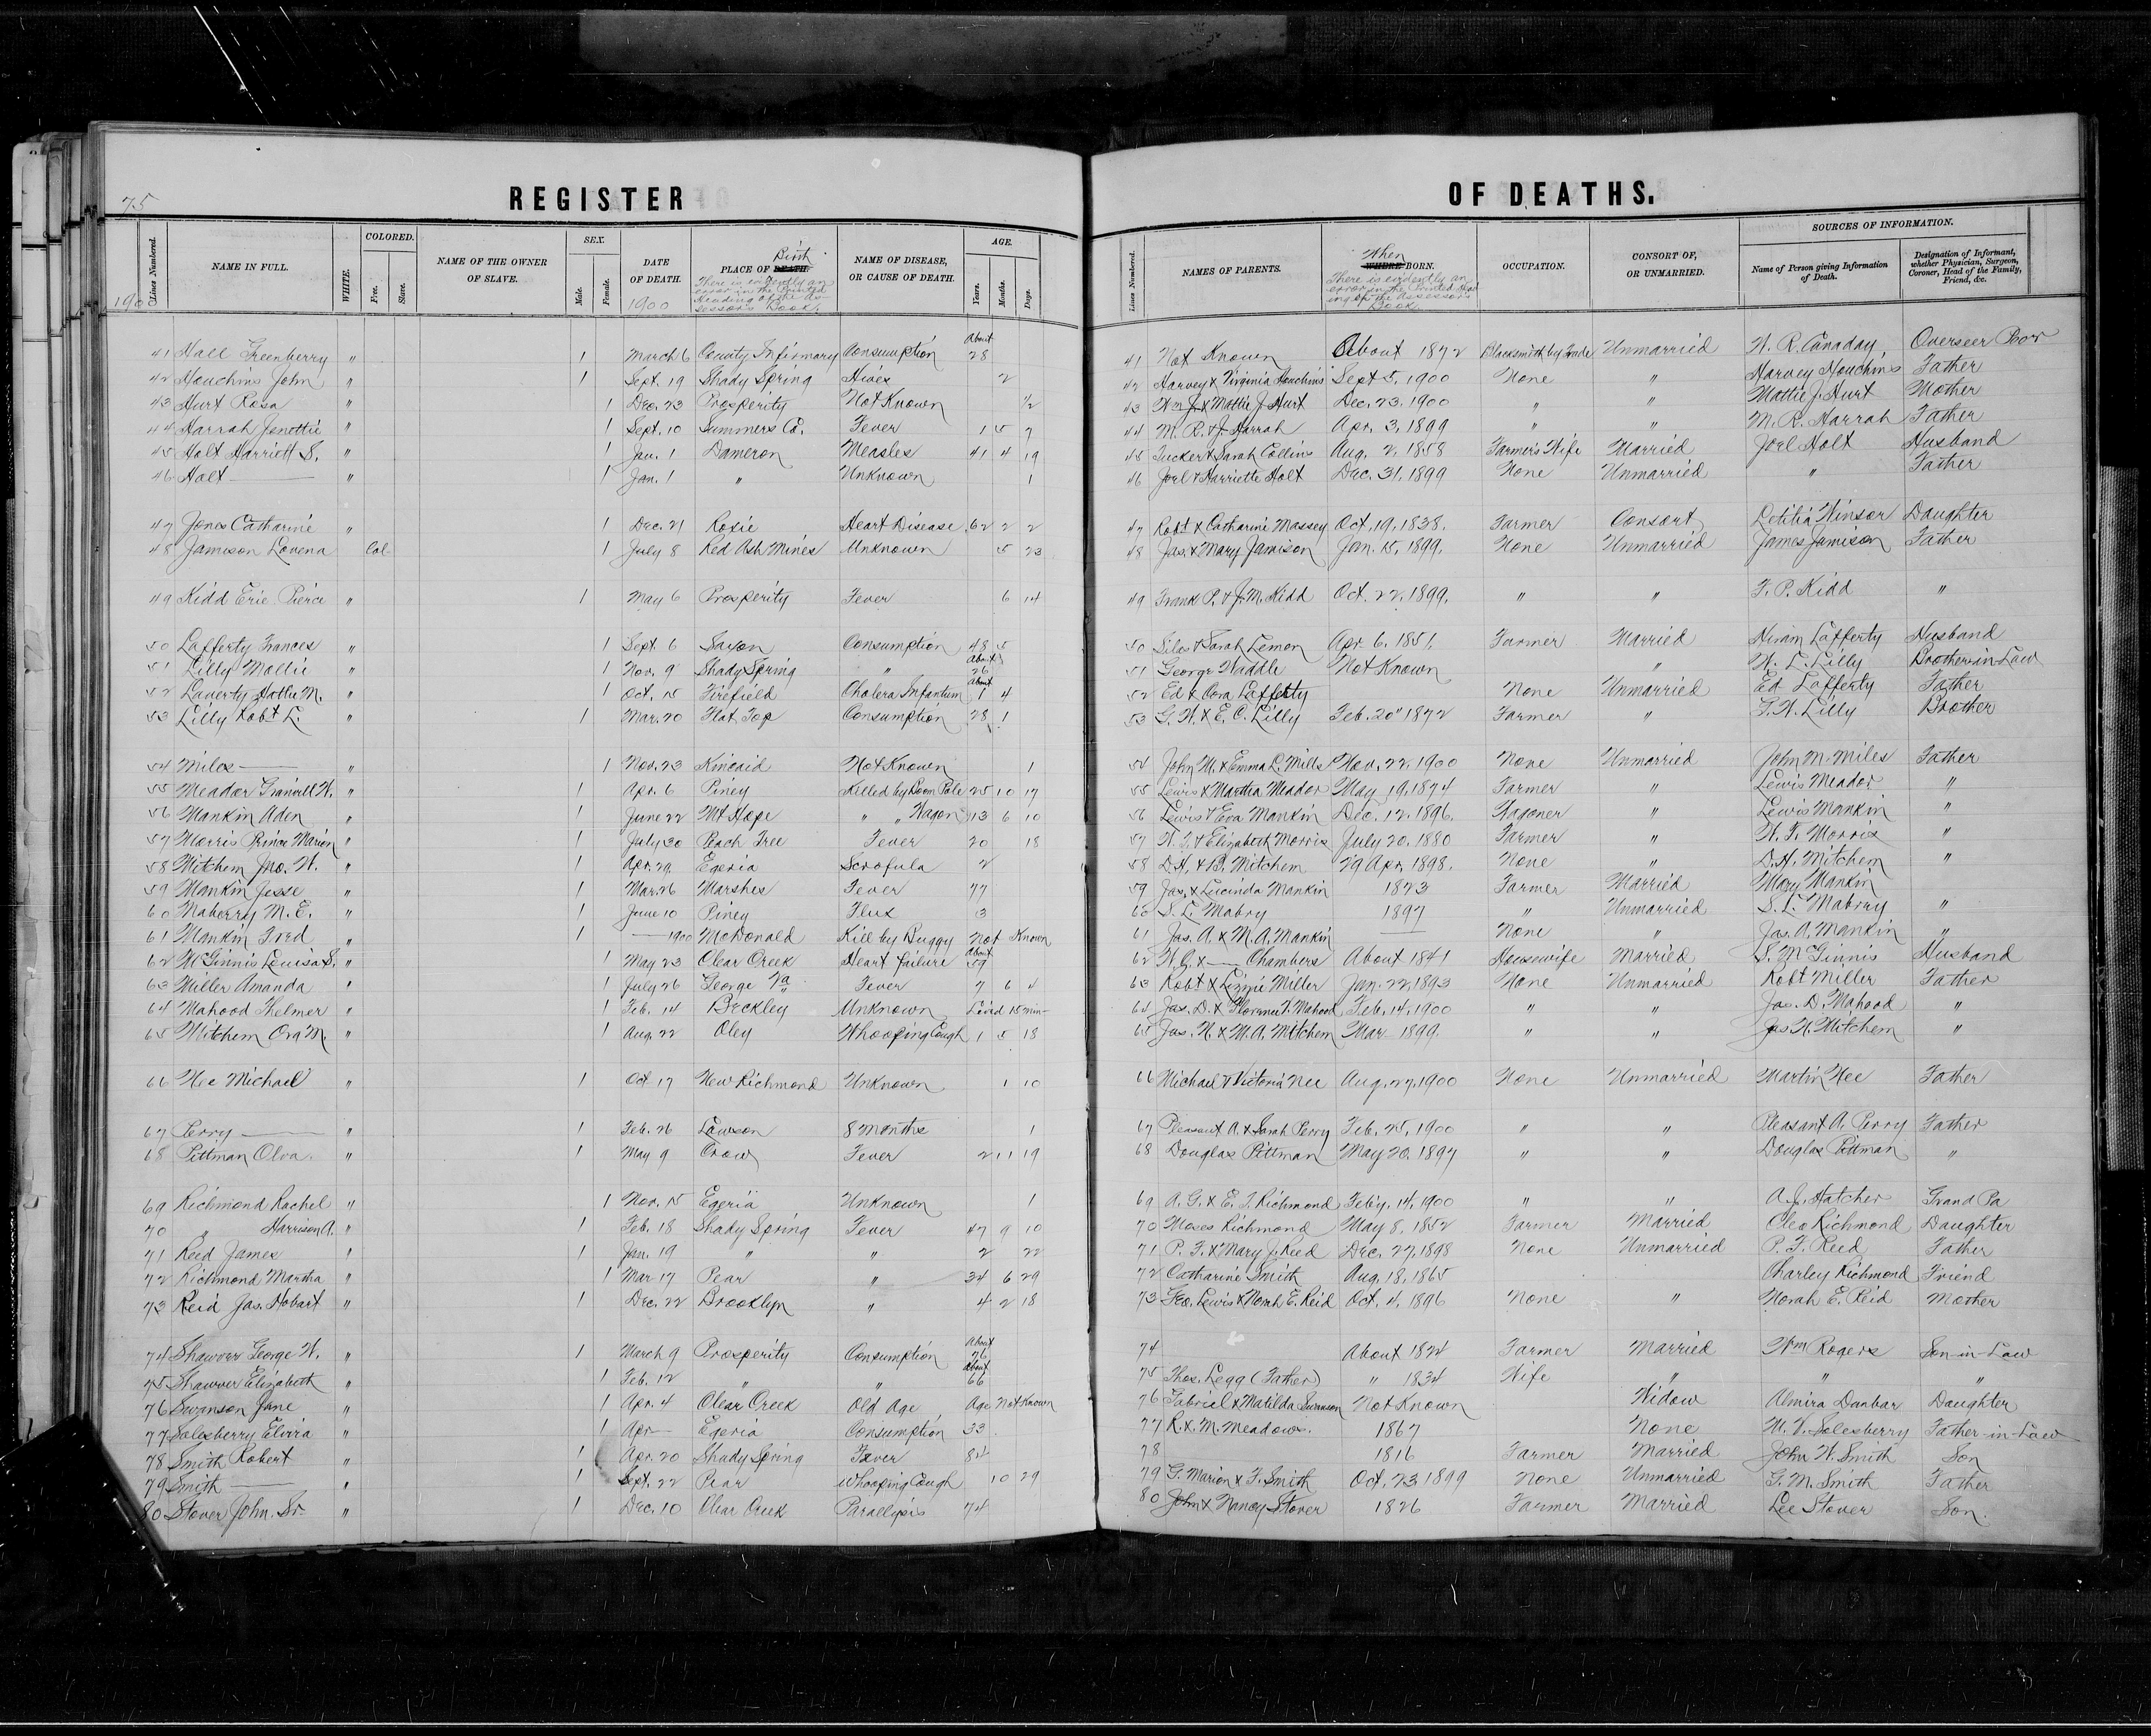 75
REGISTER OF DEATHS.
Lines Numbered. NAME IN FULL. WHITE. COLORED. Free. Slave. NAME OF THE OWNER OF SLAVE. SEX. Male. Female. DATE OF DEATH. 1900 PLACE OF DEATH. Birth There is evidently an error in the printed Heading of the Assessors Book. NAME OF DISEASE, OR CAUSE OF DEATH. AGE. Years. Months. Days. Lines Numbered. NAMES OF PARENTS. WHERE When BORN. There is evidently an error in the printed Heading of the Assessors Book. OCCUPATION. CONSORT OF, OR UNMARRIED. SOURCES OF INFORMATION. Name of Person giving Information of Death. Designation of Informant, whether Physician, Surgeon, Coroner, Head of the Family, Friend, &c.
190
41 Hall Greenberry " 1 March 6 County Infirmary Consumption About 28 41 Not Known About 1872 Blacksmith by trade Unmarried W. R. Canaday Overseer Poor
42 Houchins John " 1 Sept. 19 Shady Spring Hives 2 42 Harvey & Virginia Houchins Sept 5, 1900 None " Harvey Houchins Father
43 Hurt Rosa " 1 Dec. 23 Prosperity Not Known 1/2 43 Wm J. & Mattie J. Hurt Dec. 23, 1900 " " Mattie J. Hurt Mother
44 Harrah Jenottie " 1 Sept. 10 Summers Co. Fever 1 5 7 44 M. R. & J. Harrah Apr. 3, 1899 " " M. R. Harrah Father
45 Holt Harriett S. " 1 Jan. 1 Dameron Measles 41 4 19 45 Tucker & Sarah Collins Aug. 2, 1858 Farmer's Wife Married Joel Holt Husband
46 Holt — " 1 Jan. 1 " Unknown 1 46 Joel & Harriette Holt Dec. 31, 1899 None Unmarried " Father
47 Jones Catharine " 1 Dec. 21 Rosie Heart Disease 62 2 2 47 Robt & Catharine Massey Oct. 19, 1838. Farmer Consort Letitia Winsor Daughter
48 Jamison Lovena Col 1 July 8 Red Ash Mines Unknown 5 23 48 Jas. & Mary Jamison Jan. 15, 1899. None Unmarried James Jamison Father
49 Kidd Erie Pierce " 1 May 6 Prosperity Fever 6 14 49 Frank P. & J. M. Kidd Oct. 22, 1899. " " F. P. Kidd "
50 Lafferty Frances " 1 Sept. 6 Saxon Consumption 48 5 50 Silas & Sarah Lemon Apr. 6, 1851. Farmer Married Hiram Lafferty Husband
51 Lilly Mollie " 1 Nov. 9 Shady Spring " About 26 51 George Waddle Not Known " W. L. Lilly Brother-in-Law
52 Laverty Hattie M. " 1 Oct. 15 Firefield Cholera Infantum About 1 4 52 Ed & Cora Lafferty None Unmarried Ed Lafferty Father
53 Lilly Robt L. " 1 Mar. 20 Flat Top Consumption 28 1 53 G. W. & E. C. Lilly Feb. 20" 1872 Farmer " T. W. Lilly Brother
54 Miles — " 1 Nov. 23 Kincaid Not Known 1 54 John M. & Emma L. Mills Nov. 22, 1900 None Unmarried John M. Miles Father
55 Meador Granvill W. " 1 Apr. 6 Piney Killed by Boom Pole 25 10 17 55 Lewis & Martha Meador May 19, 1874 Farmer " Lewis Meador "
56 Mankin Aden " 1 June 22 Mt Hope " " Wagon 13 6 10 56 Lewis & Eva Mankin Dec. 12, 1896. Wagoner " Lewis Mankin "
57 Morris Prince Marion " 1 July 30 Peach Tree Fever 20 18 57 W. F. & Elizabeth Morris July 20, 1880 Farmer " W. F. Morris "
58 Mitchem Jno. W. " 1 Apr. 29 Egeria Scrofula 2 58 D. H. & B. Mitchem 29 Apr. 1898. None " D. H. Mitchem "
59 Mankin Jesse " 1 Mar. 26 Marshes Fever 77 59 Jas. & Lucinda Mankin 1823 Farmer Married Mary Mankin
60 Maberry M. E. " 1 June 10 Piney Flux 3 60 S. L. Mabry 1897 " Unmarried S. L. Mabrey "
61 Mankin Fred " 1 — 1900 McDonald Kill by Buggy Not Known 61 Jas. A. & M. A. Mankin — None " Jas. A. Mankin "
62 McGinnis Louisa S. " 1 May 23 Clear Creek Heart failure About 59 62 W. G. & — Chambers About 1841 Housewife Married S. McGinnis Husband
63 Miller Amanda " 1 July 26 George Va Fever 7 6 4 63 Robt & Lizzie Miller Jan. 22, 1893 None Unmarried Robt Miller Father
64 Mahood Thelmer " 1 Feb. 14 Beckley Unknown Lived 15 min— 64 Jas. D. & Florence V. Mahood Feb. 14, 1900 " " Jas. D. Mahood "
65 Mitchem Ora M. " 1 Aug. 22 Oley Whooping Cough 1 5 18 65 Jas. N. & M. A. Mitchem Mar 1899. " " Jas N. Mitchem "
66 Nee Michael " 1 Oct 17 New Richmond Unknown 1 10 66 Michael & Victoria Nee Aug. 27, 1900 None Unmarried Martin Nee Father
67 Perry — " 1 Feb. 26 Lawson 8 Months 1 67 Pleasant A. & Sarah Perry Feb. 25, 1900 " " Pleasant A. Perry Father
68 Pittman Olva. " 1 May 9 Crow Fever 2 11 19 68 Douglas Pittman May 20, 1897 " " Douglas Pittman "
69 Richmond Rachel " 1 Nov. 15 Egeria Unknown 1 69 A. G. & E. T. Richmond Feb'y. 14, 1900 " " A. J. Hatcher Grand Pa
70 " Harrison A. " 1 Feb. 18 Shady Spring Fever 47 9 10 70 Moses Richmond May 8, 1852 Farmer Married Cleo Richmond Daughter
71 Reed James " 1 Jan. 19 " " 2 22 71 P. F. & Mary J. Reed Dec. 27, 1898 None Unmarried P. F. Reed Father
72 Richmond Martha " 1 Mar 17 Pear " 34 6 29 72 Catharine Smith Aug. 18, 1865 Charley Richmond Friend
73 Reid Jas. Hobart " 1 Dec. 22 Brooklyn " 4 2 18 73 Geo. Lewis & Norah E. Reid Oct. 4, 1896 None " Norah E. Reid Mother
74 Shawver George W. " 1 March 9 Prosperity Consumption About 76 74 About 1824 Farmer Married Wm Rogers Son-in-Law
75 Shawver Elizabeth " 1 Feb. 12 " " About 66 75 Thos. Legg (Father) " 1834 Wife " " "
76 Swanson Jane " 1 Apr. 4 Clear Creek Old Age Age Not Known 76 Gabriel & Matilda Swanson Not Known Widow Almira Dunbar Daughter
77 Salesberry Elvira 1 Apr— Egeria Consumption 33. 77 R. & M. Meadows. 1867 None W. V. Salesberry Father-in-Law
78 Smith Robert " 1 Apr. 20 Shady Spring Fever 84 78 1816 Farmer Married John W. Smith Son
79 Smith — " 1 Sept. 22 Pear Whooping Cough 10 29 79 G. Marion & F. Smith Oct. 23 1899 None Unmarried G. M. Smith Father
80 Stover John. Sr " 1 Dec. 10 Clear Creek Parallipis 74 80 John & Nancy Stover 1826 Farmer Married Lee Stover Son.